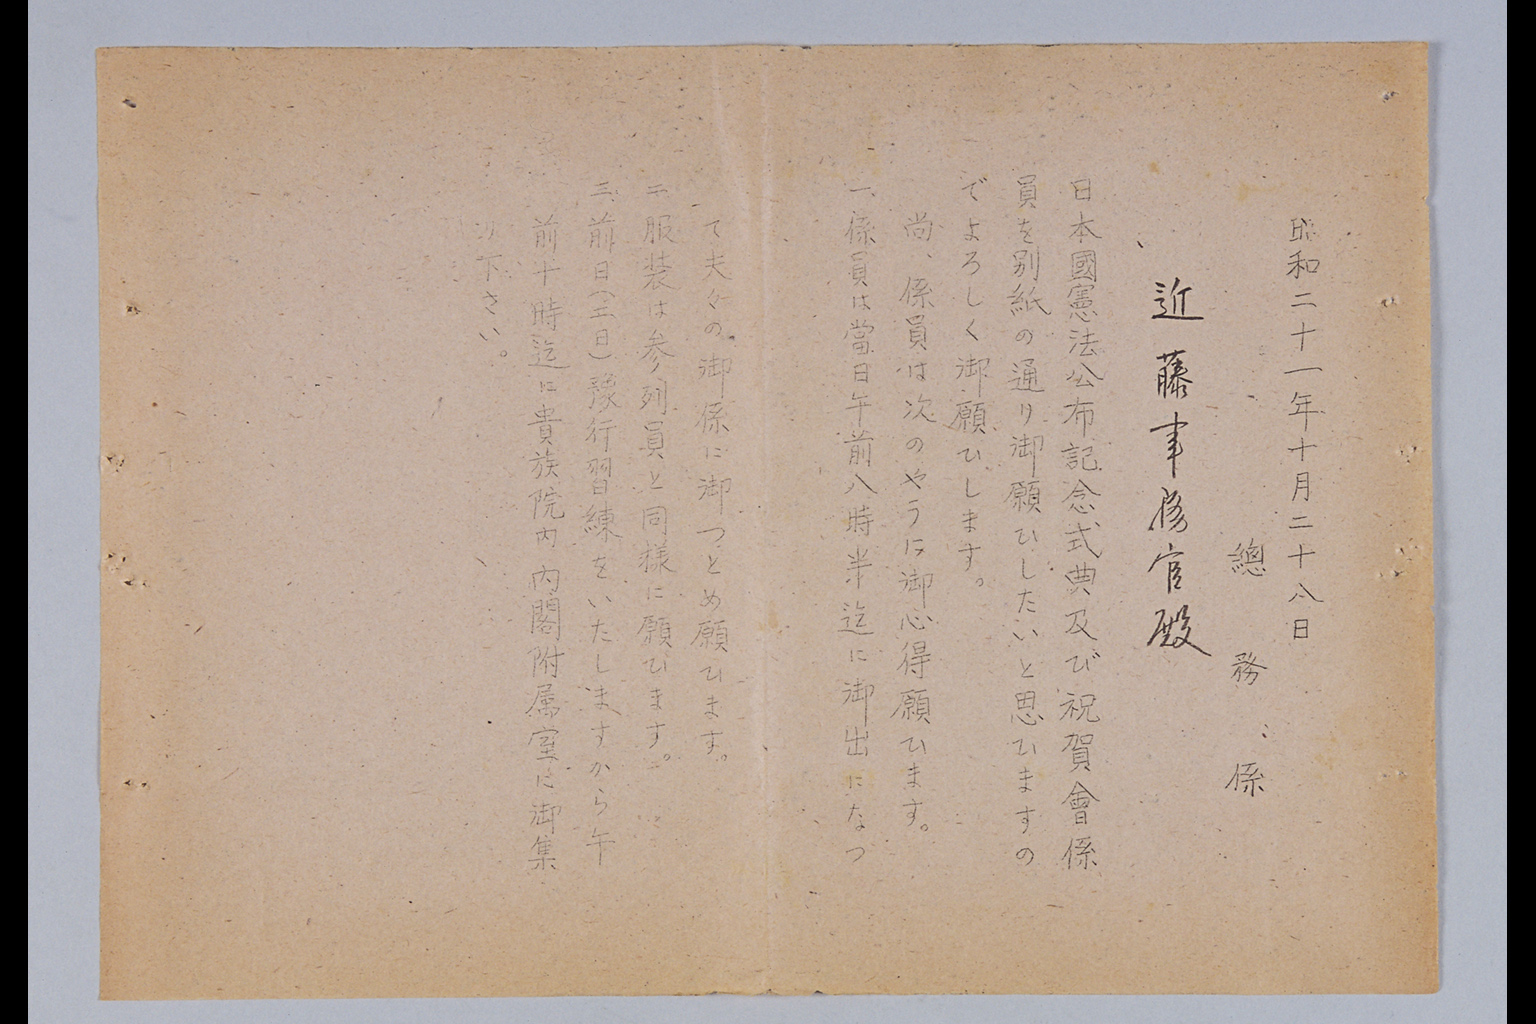 昭和二十一年十月二十八日
總務係
近藤事務官殿
日本國憲法公布記念式典及び祝賀會係
員を別紙の通り御願ひしたいと思ひますの
でよろしく御願ひします。
尚、係員は次のやうに御心得願ひます。
一、係員は當日午前八時半迄に御出になつ
て夫々の御係に御つとめ願ひます。
二、服装は参列員と同様に願ひます。
三、前日(三日)豫行習練をいたしますから午
前十時迄に貴族院内内閣附属室に御集
り下さい。